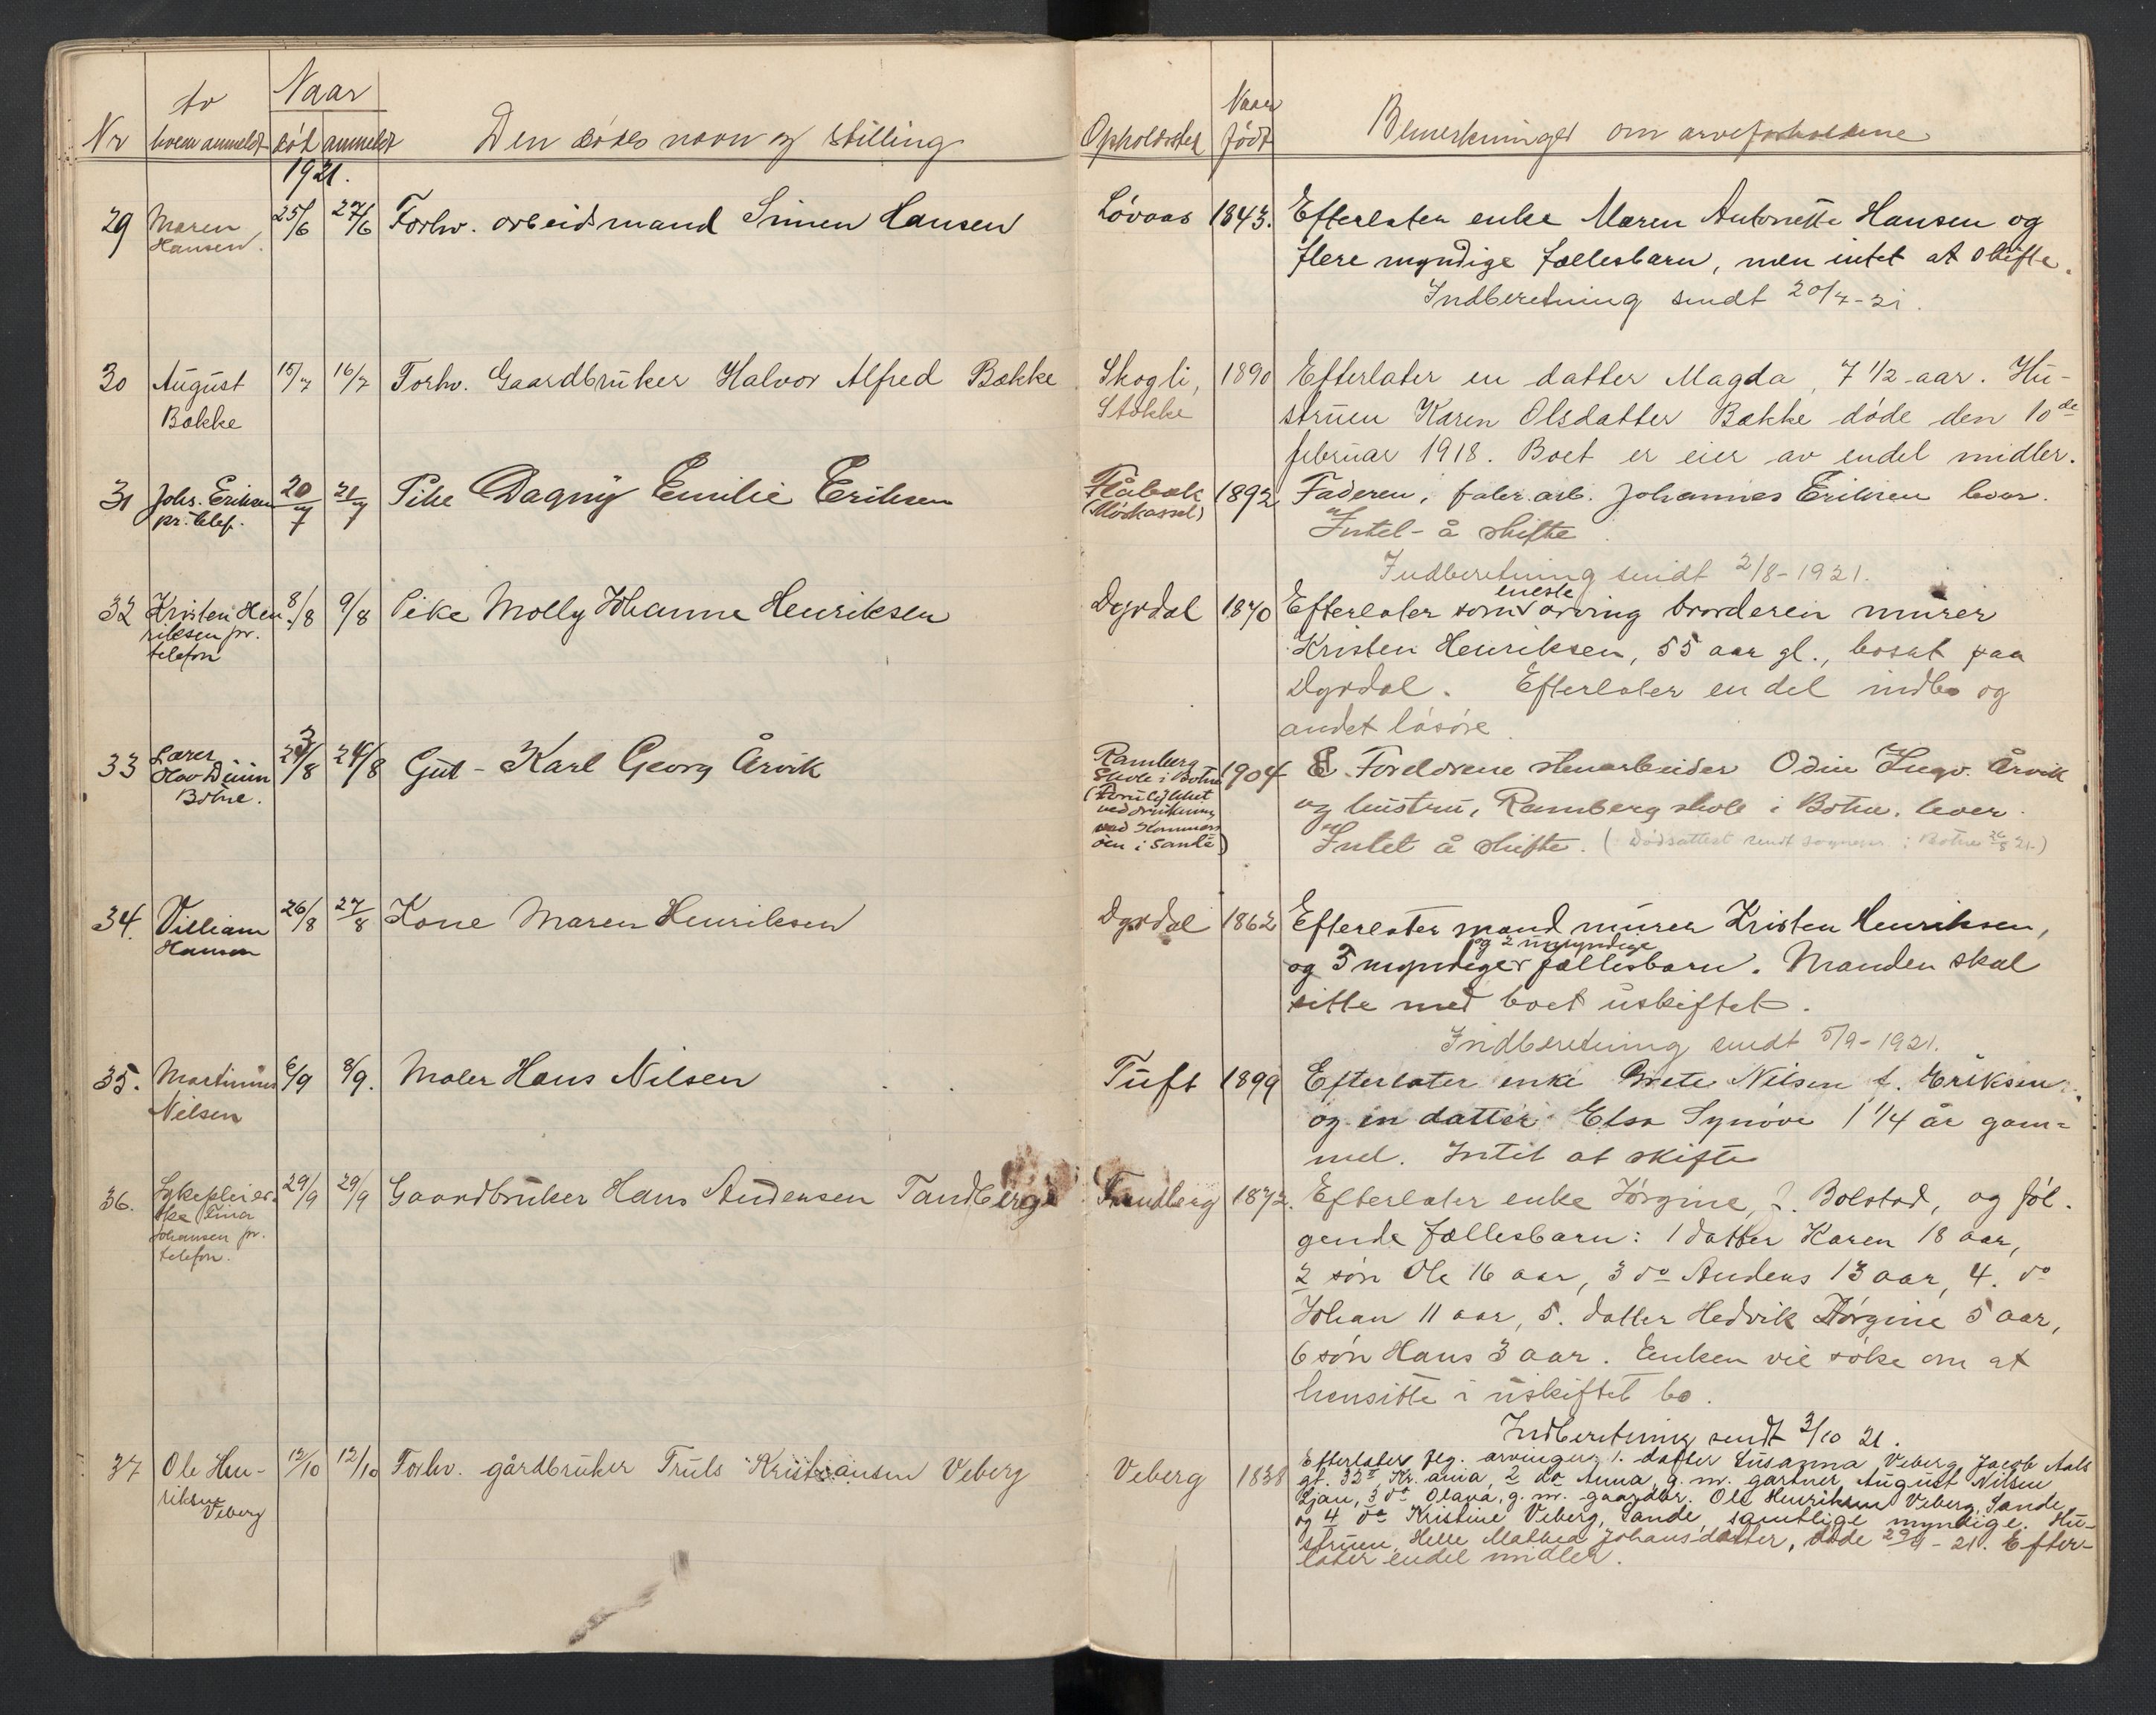 Nr
Av hvem anmeldt
Naar
død
anmeldt
Den dødes navn og stilling
Opholdssted
Naar født
Bemerkninger om arveforholdene
1921.
29 Maren Hansen. 25/6 27/6 Forhv. arbeidsmand Simen Hansen Løvaas 1843. Efterlater enke Maren Antonette Hansen og
flere myndige fællesbarn, men intet at skifte.
Indberetning sendt 20/7-21.
30 August Bakke 15/7 16/7 Forhv. Gaardbruker Halvor Alfred Bakke Skogli, Stokke 1890 Efterlater en datter Magda, 7 1/2 aar. Hu-
struen Karen Olsdatter Bakke døde den 10de
februar 1918. Boet er eier av endel midler.
31 Johs. Eriksen pr. telef. 20/7 21/7 Pike Dagny Emilie Eriksen 1892 Faderen, fabr. arb. Johannes Eriksen lever.
Intet å skifte.
Indberetning sendt 2/8-1921.
32 Kristen Hen-
riksen pr.
telefon
8/8 9/8 Pike Molly Johanne Henriksen Dyrdal 1870 Efterlater som eneste arving broderen murer
Kristen Henriksen, 55 aar gl., bosat paa
Dyrdal. Efterlater en del indbo og
andet løsøre.
33 Lærer
Botne.
23/8 24/8 Gut - Karl Georg Årvik
Ramberg
Skole i Botne
(Forulykket
ved drukning
ved Hammers-
øen i Sande)
1904 Foreldrene stenarbeider Odin Ingv. Årvik
og hustru, Ramberg skole i Botne, lever.
Intet å skifte. (Dødsattest sendt sognepr. i Botne 26/8 21)
34. Villiam
Hansen
26/8 27/8 Kone Maren Henriksen Dyrdal 1862 Efterlater mand murer Kristen Henriksen,
og 5 myndige og 2 umyndige fællesbarn. Manden skal
sitte med boet uskiftet.
Indberetning sendt 5/9-1921.
35. Martinius
Nilsen
6/9 8/9. Maler Hans Nilsen Tuft 1899 Efterlater enke Grete Nilsen f. Eriksen
og en datter Elsa Synøve 1 1/4 år gam=
mel. Intet at skifte
36. Sykepleier-
ske Tina
Johansen pr.
telefon.
29/9 29/9 Gaardbruker Hans Andersen Tandberg Tandberg 1872. Efterlater enke Jørgine, f. Bolstad, og føl.
gende fællesbarn: 1 datter Karen 18 aar,
2 søn Ole 16 aar, 3 do Anders 13 aar, 4. do
Johan 11 aar, 5. datter Hedvik Jørgine 5 aar,
6 søn Hans 3 aar. Enken vil søke om at
hensitte i uskiftet bo.
Indberetning sendt 3/10 21.
37 Ole Hen-
riksen
Veberg
12/10 12/10 Forhv. gårdbruker Truls Kristiansen Veberg Veberg 1838 Efterlater flg. arvinger: 1. datter Susanna Veberg, Jacob Aals
gt. 32 II Kr.ania, 2 do Anna, g.m. gartner August Nilsen
Ljan, 3 do Olava, g.m. gaardbr. Ole Henriksen Veberg, Sande
og 4 do Kristine Veberg, Sande, samtlige myndige. Hu-
struen, Helle Mathea Johansdatter, døde 29/9-21. Efter-
later endel midler.